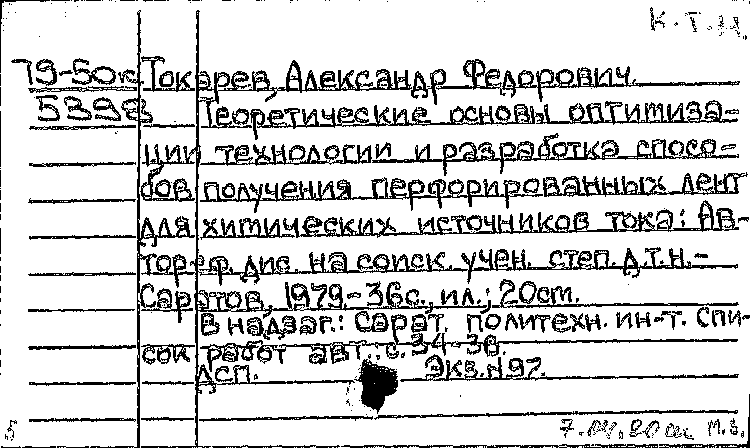 К.Т.Н.
79-50к Токарев, Александр Федорович.
5398 Теоретические основы оптимиза-
ции технологии и разработка спосо-
бов получения перфорированных лент
для химических источников тока: Ав-
тореф. дис. на соиск. учен. степ. д.т.н.-
Саратов, 1979.-36с., ил.; 20cm.
В надзаг.: Сарат. политехн. ин-т. Спи-
сок работ авт.: с.34-36.
ДСП. Экз.N97.
5